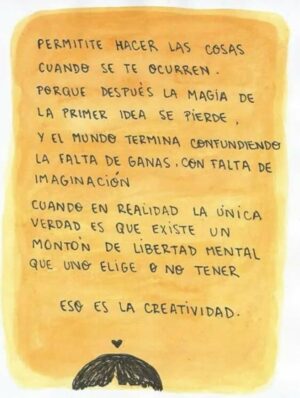 PERMITITE HACER LAS COSAS
CUANDO SE TE OCURREN.
PORQUE DESPUÉS LA MAGIA DE
LA PRIMER IDEA SE PIERDE,
Y EL MUNDO TERMINA CONFUNDIENDO
LA FALTA DE GANAS, CON FALTA DE
IMAGINACIÓN
CUANDO EN REALIDAD LA ÚNICA
VERDAD ES QUE EXISTE UN
MONTÓN DE LIBERTAD MENTAL
QUE UNO ELIGE O NO TENER
ESO ES LA CREATIVIDAD.